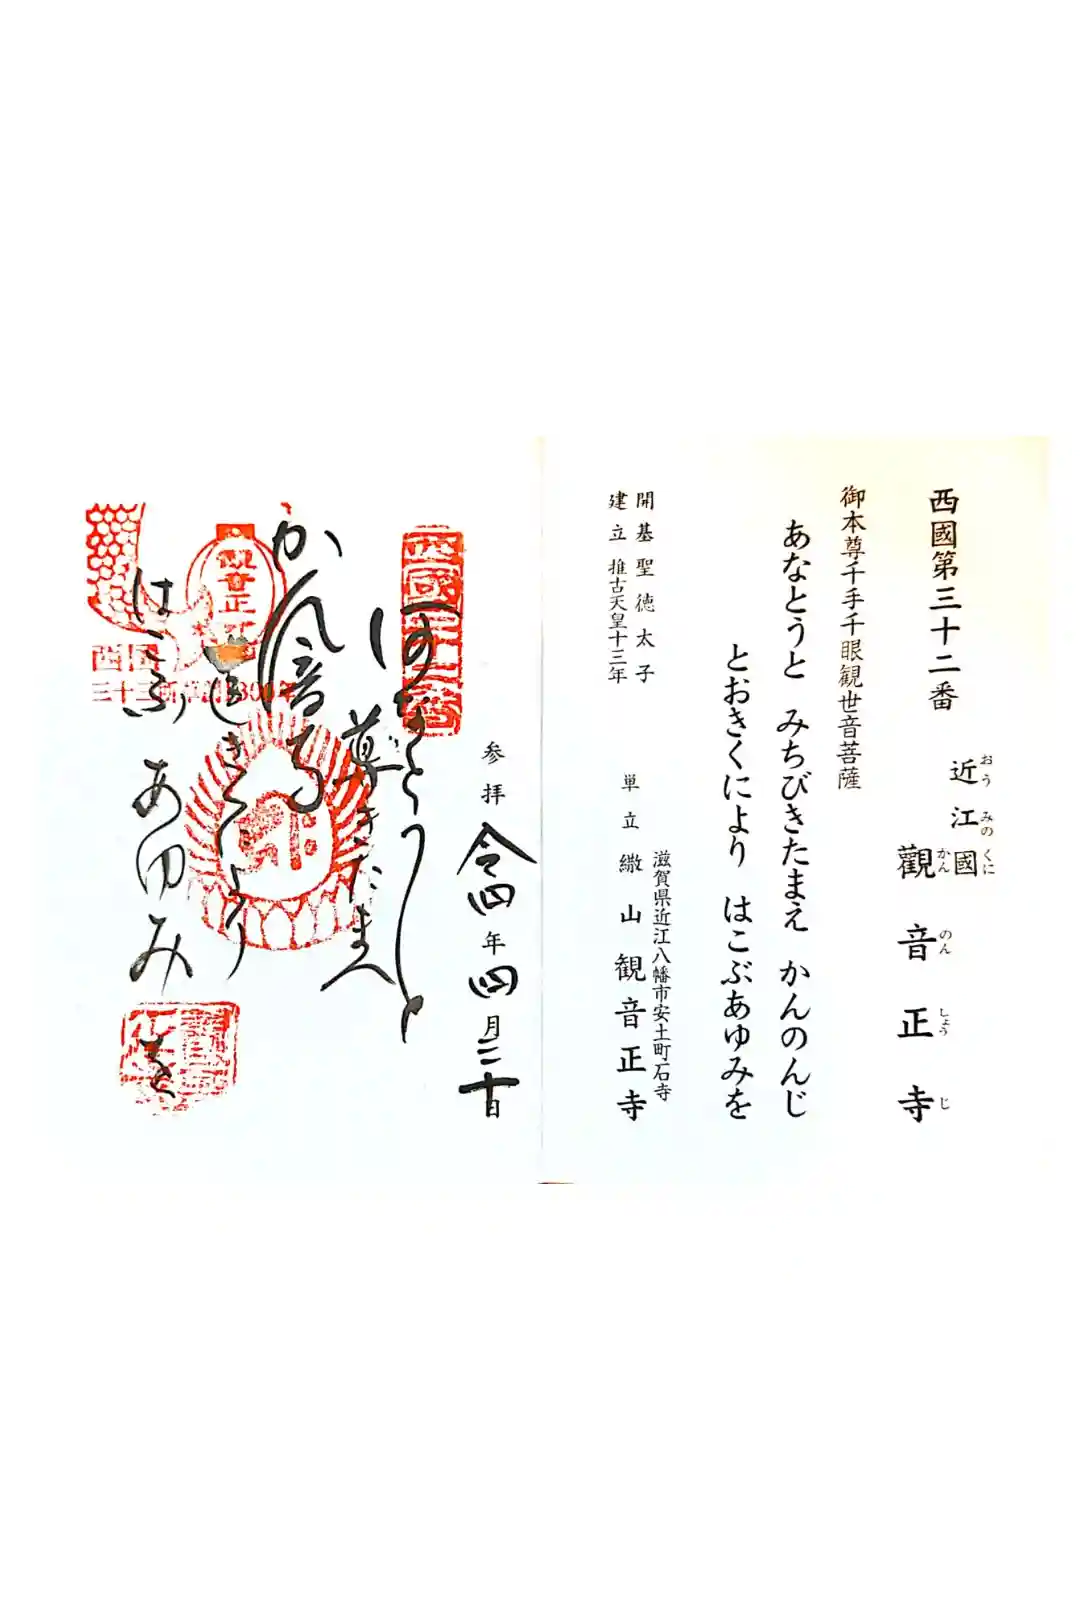 西國第三十二番
近江國
おうみのくに
觀音正寺
かんのんしょうじ
御本尊千手千眼観世音菩薩
あなとうと みちびきたまえ かんのんじ
とおきくにより はこぶあゆみを
開基聖徳太子
建立推古天皇十三年
滋賀県近江八幡市安土町石寺
単立繖山観音正寺
参拝 令四年四月二十日
西國三十二番
あなとうと
尊きたまへ
かん音寺
遠きくにより
はこぶあゆみ
を